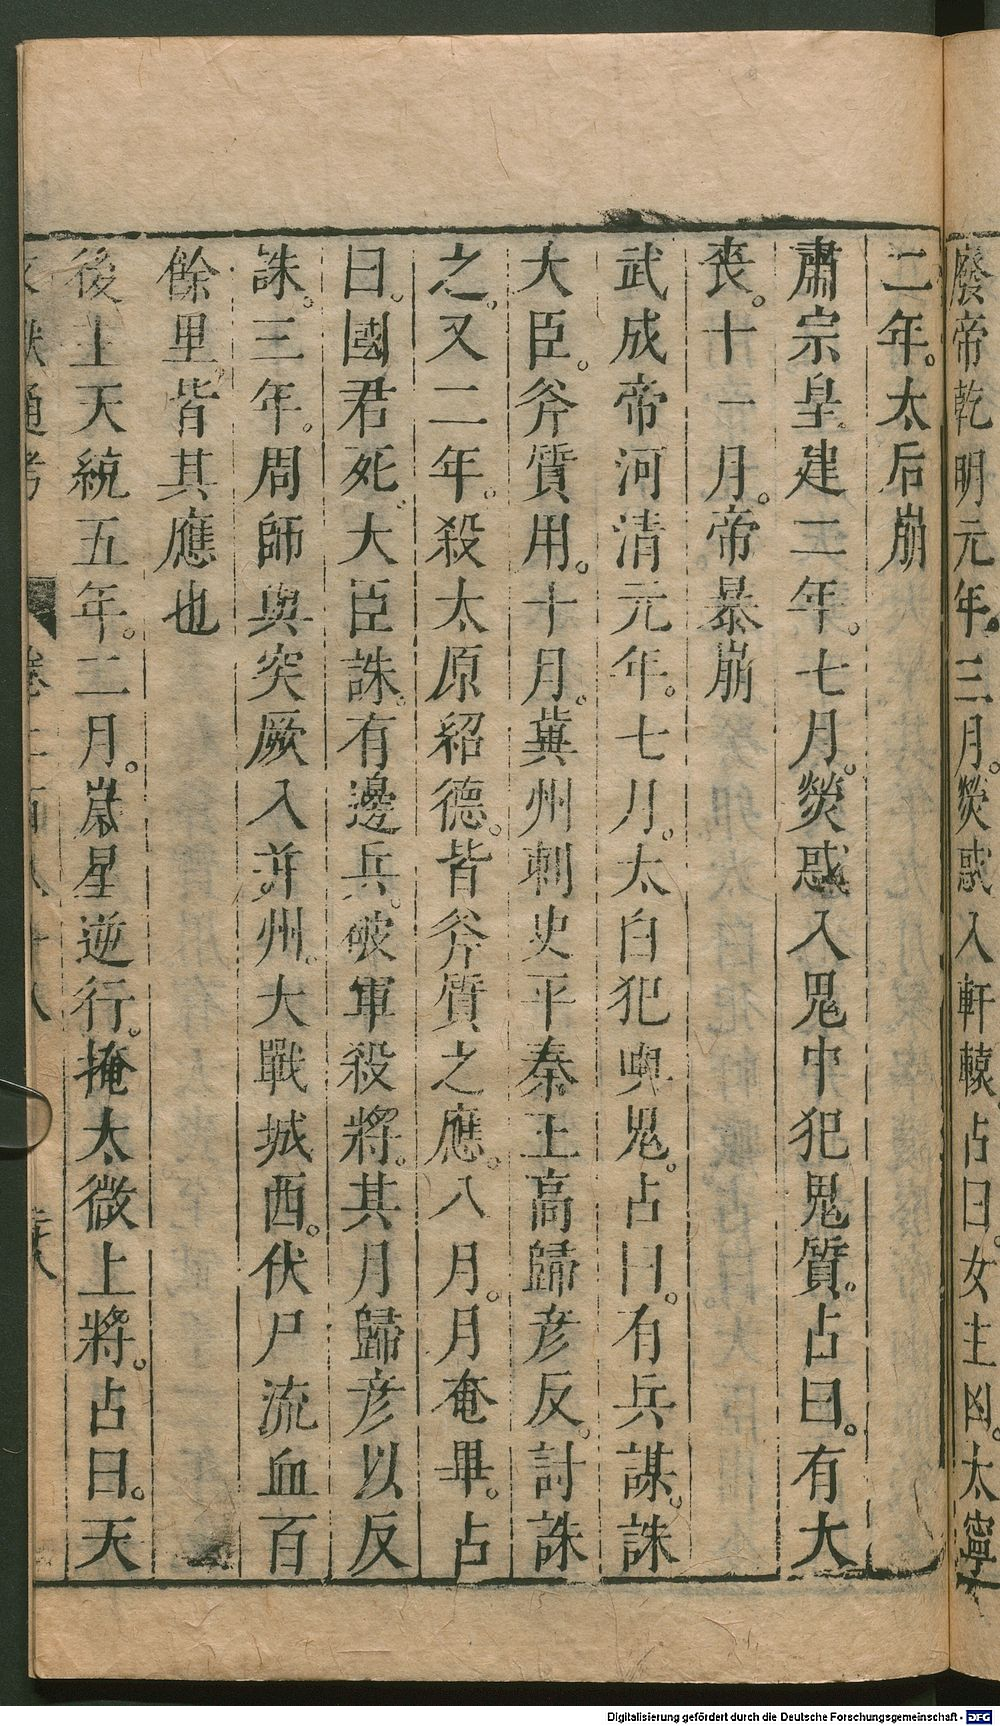 廢帝乾明元年。三月。熒惑入軒轅。占曰。女主凶。太寧
二年。太后崩
肅宗皇建二年。七月。熒惑入鬼中犯鬼質。占曰。有大
喪。十一月。帝暴崩
武成帝河清元年。七月。太白犯輿鬼。占曰。有兵謀。誅
大臣。斧質用。十月。冀州刺史平秦王高歸彥反。討誅
之。又二年。殺太原紹德。皆斧質之應。八月。月奄畢。占
曰。國君死。大臣誅。有邊兵。破軍殺將。其月歸彥以反
誅。三年。周師與突厥入并州。大戰城西。伏尸流血百
餘里。皆其應也
後主天統五年。二月。歲星逆行。掩太微上將。占曰。天
文獻通考 卷二百八十八 
Digitalisierung gefördert durch die Deutsche Forschungsgemeinschaft - DFG